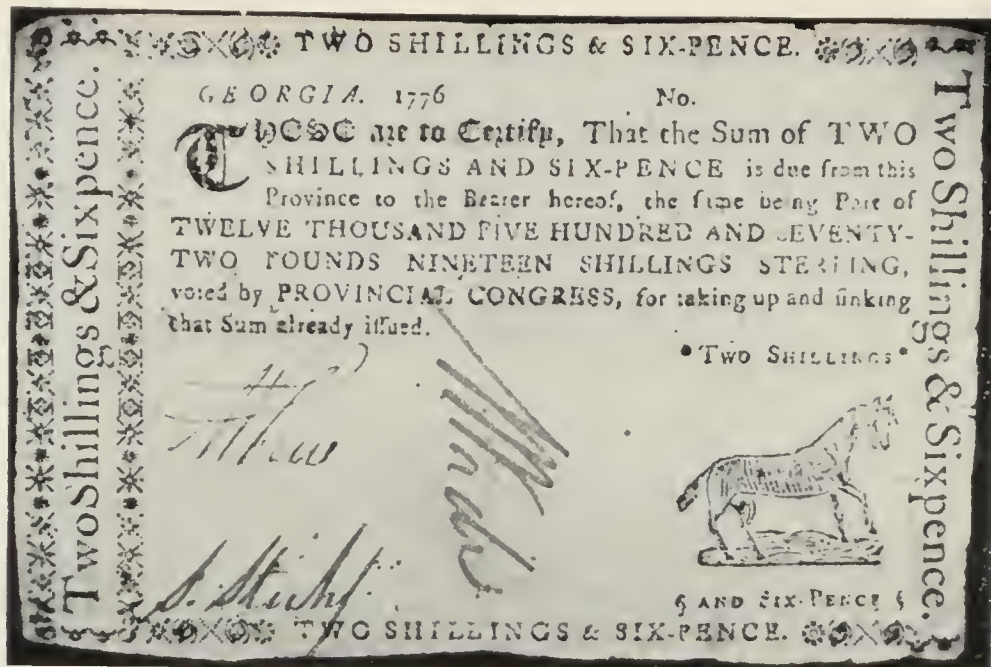 TWO SHILLINGS & SIX-PENCE.
Two Shillings & Sixpence.
GEORGIA. 1776 No.
THESE are to Certify, That the Sum of TWO
SHILLINGS AND SIX-PENCE is due from this
Province to the Bearer hereof, the same being Part of
TWELVE THOUSAND FIVE HUNDRED AND SEVENTY-
TWO POUNDS NINETEEN SHILLINGS STERLING,
voted by PROVINCIAL CONGRESS, for taking up and sinking
that Sum already issued.
TWO SHILLINGS
AND SIX-PENCE
Two Shillings & Sixpence.
TWO SHILLINGS & SIX-PENCE.